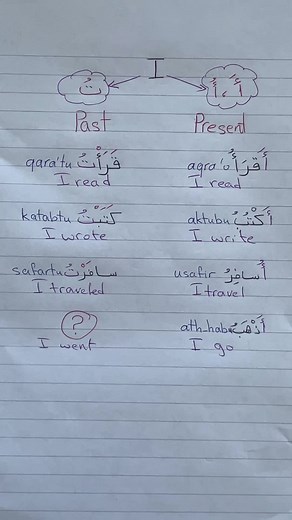 I
تُ أَ ، أُ
Past Present
qara'tu قَرَأْتُ aqra'o أَقْرَأُ
I read I read
katabtu كَتَبْتُ aktubu أَكْتُبُ
I wrote I write
safartu سافَرْتُ usafir أُسافِرُ
I traveled I travel
? ath-habu أَذْهَبُ
I went I go